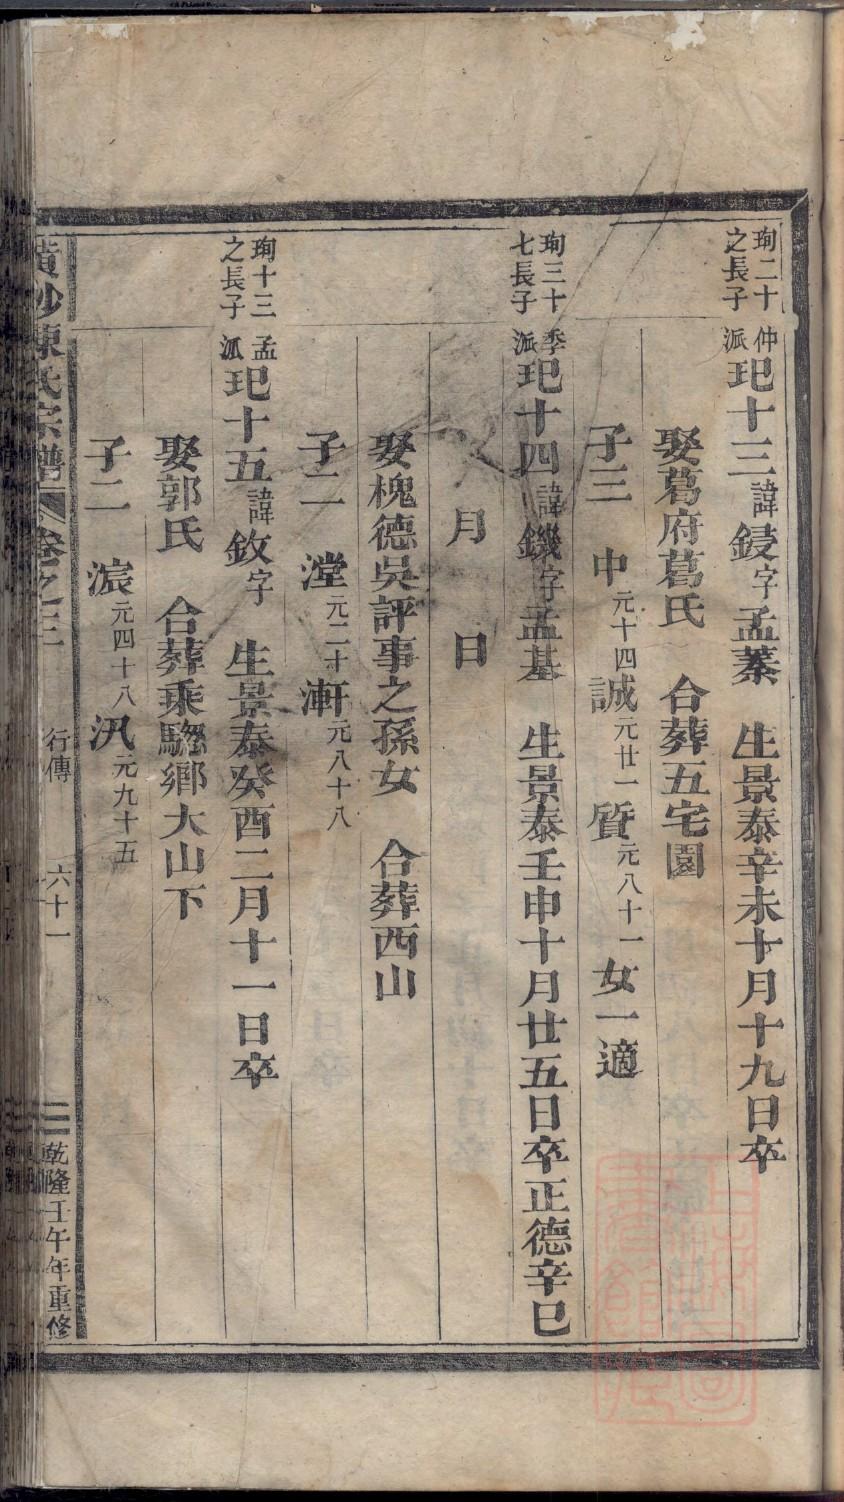 珣二十之長子
仲派玘十三諱錽字孟蓁 生景泰辛未十月十九日卒
娶葛府葛氏 合葬五宅園
子三 中元十四誠元廿一質元八十一女一適
珣三十七長子
季派玘十四諱鐖字孟基 生景泰壬申十月廿五日卒正德辛巳
月 日
娶槐德吳評事之孫女 合葬西山
子二 漟元二十漸元八十八
珣十三之長子
孟派玘十五諱敛字 生景泰癸酉二月十一日卒
娶郭氏 合葬乘驄鄉大山下
子二 滖元四十八汎元九十五
黃沙陳氏宗譜 卷之三 行傳 六十一 乾隆壬午年重修